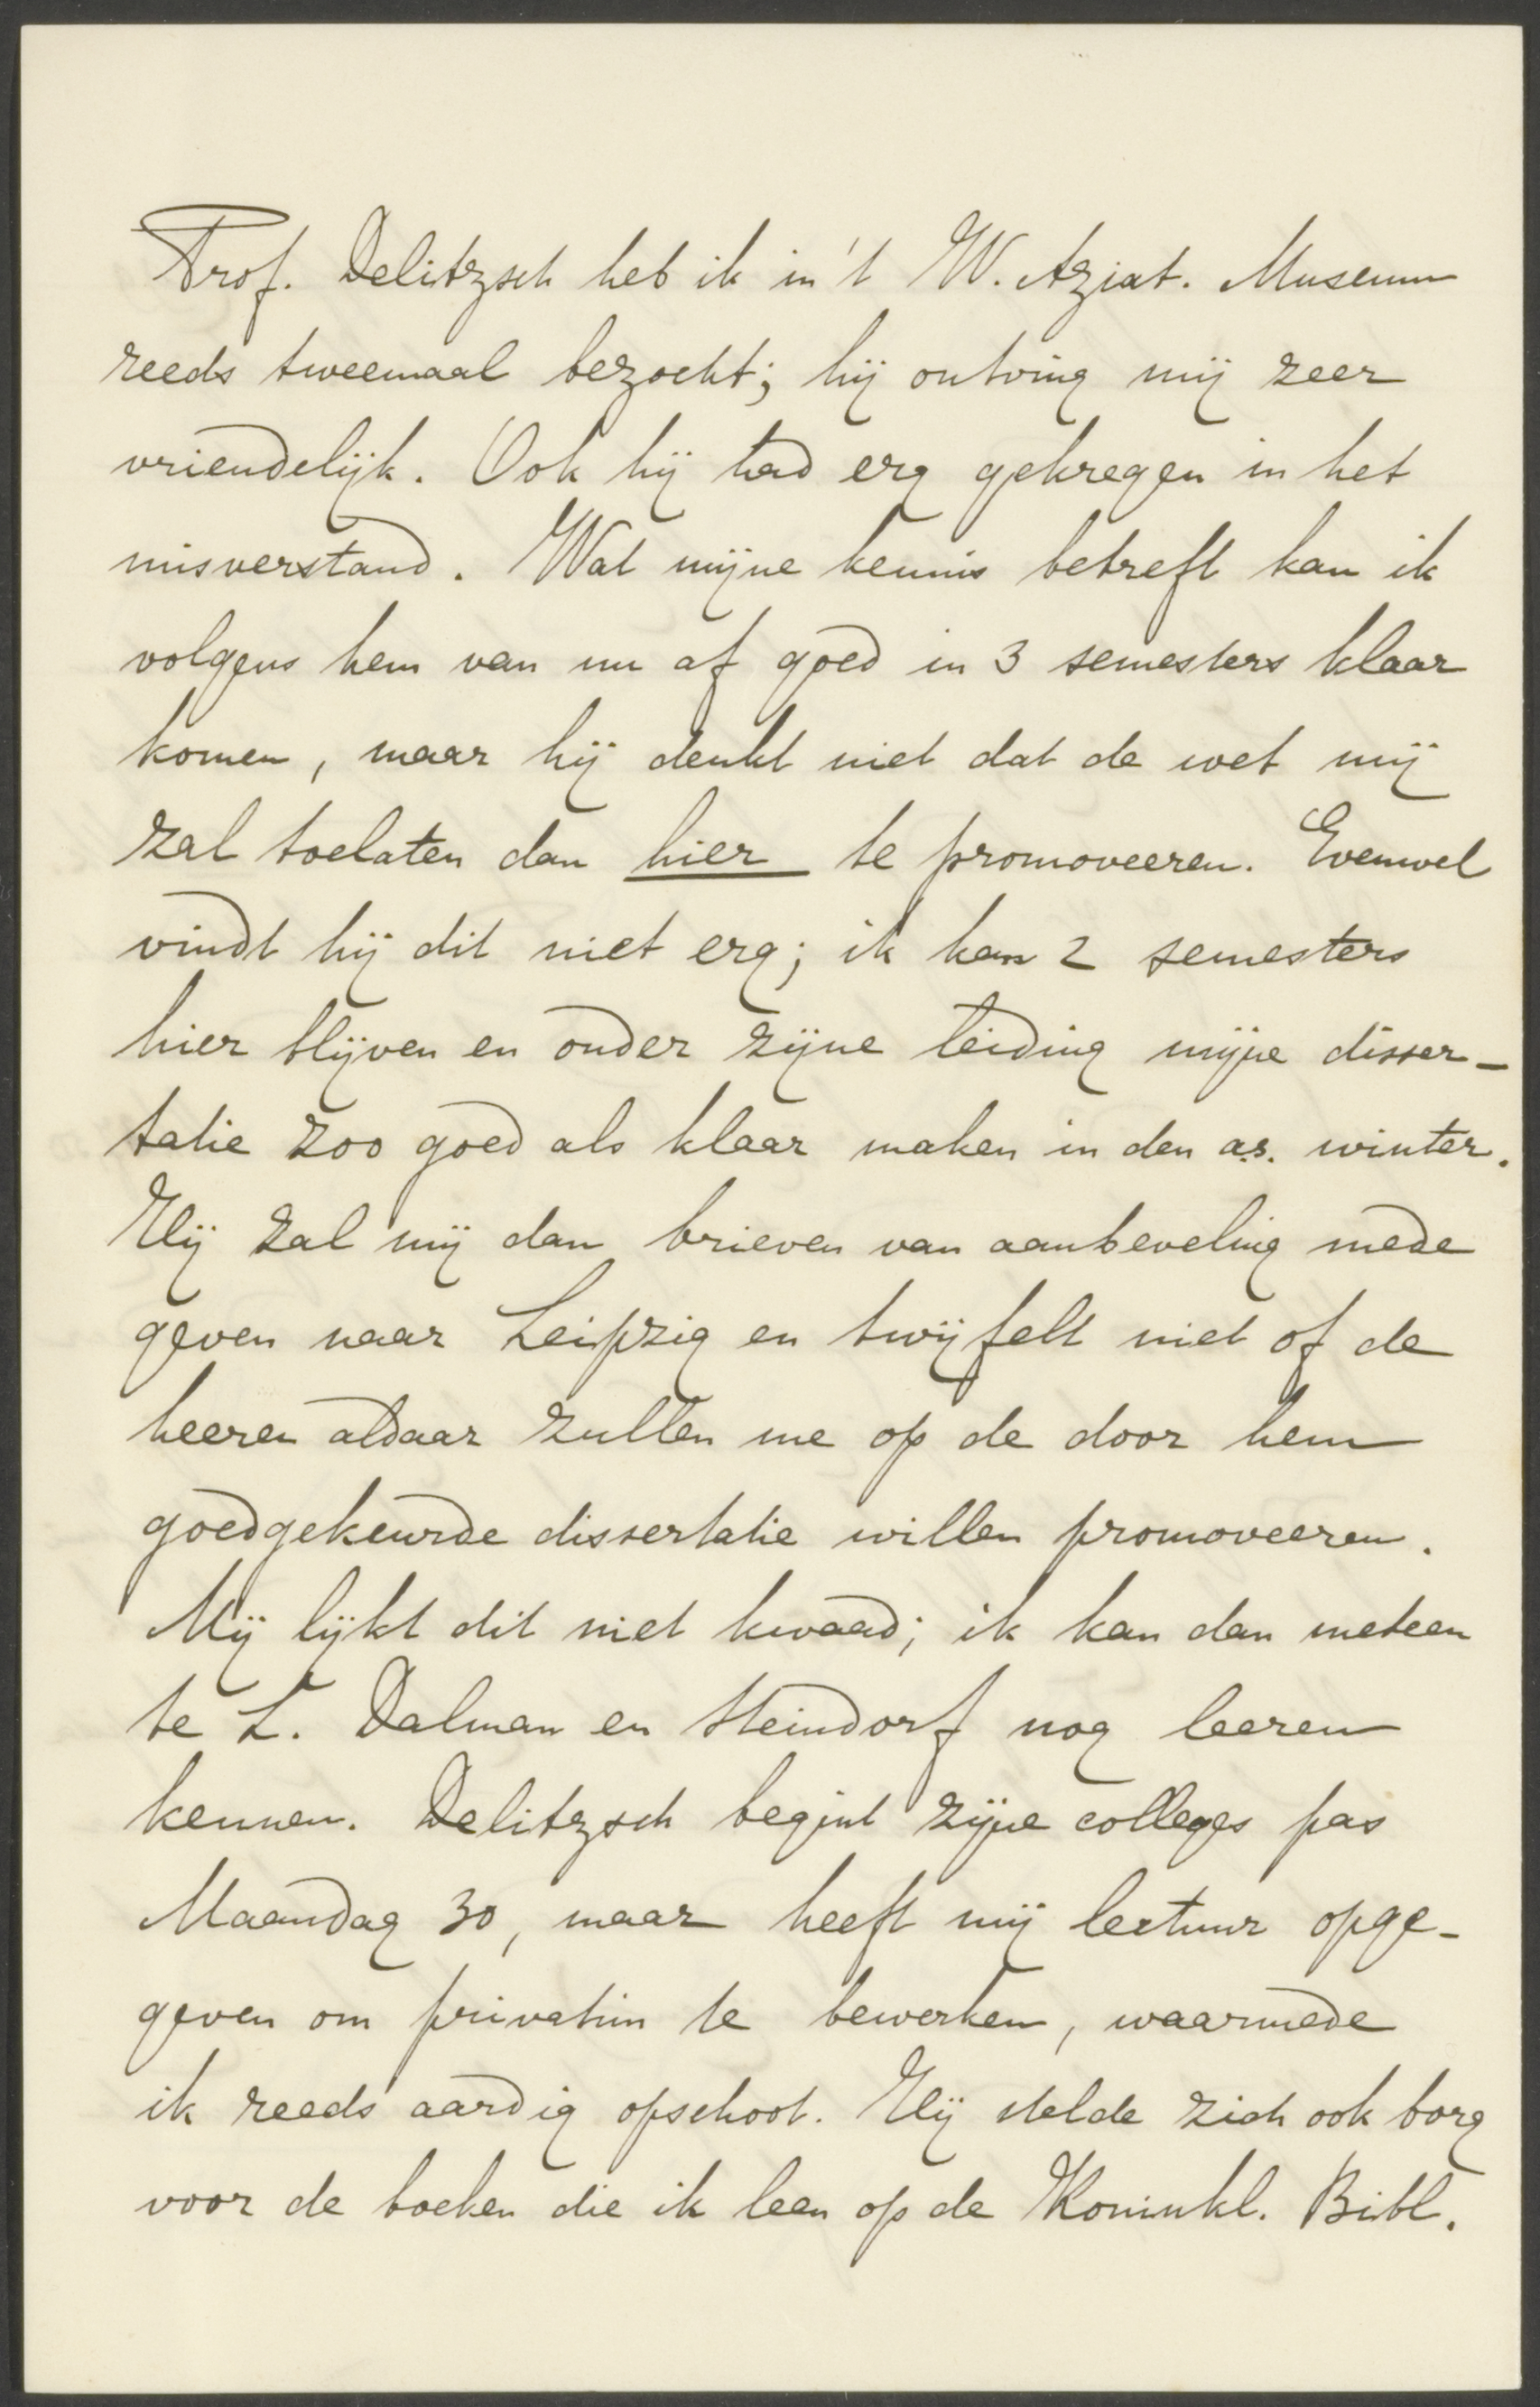 Prof. Delitzsch heb ik in 't W. Aziat. Museum
reeds tweemaal bezocht; hij ontving mij zeer
vriendelijk. Ook hij had erg gekregen in het
misverstand. Wat mijne kennis betreft kan ik
volgens hem van nu af goed in 3 semesters klaar
komen, maar hij denkt niet dat de wet mij
zal toelaten dan hier te promoveeren. Evenwel
vindt hij dit niet erg; ik kan 2 semesters
hier blijven en onder zijne leiding mijne disser-
tatie zoo goed als klaar maken in den a.s. winter.
Hij zal mij dan brieven van aanbeveling mede
geven naar Leipzig en twijfelt niet of de
heeren aldaar zullen me op de door hem
goedgekeurde dissertatie willen promoveeren.
Mij lijkt dit niet kwaad; ik kan dan meteen
te L. Dalman en Steindorf nog leeren
kennen. Delitzsch begint zijne colleges pas
Maandag 30, maar heeft mij lectuur opge-
geven om privatim te bewerken, waarmede
ik reeds aardig opschoot. Hij stelde zich ook borg
voor de boeken die ik leen op de Koninkl. Bibl.